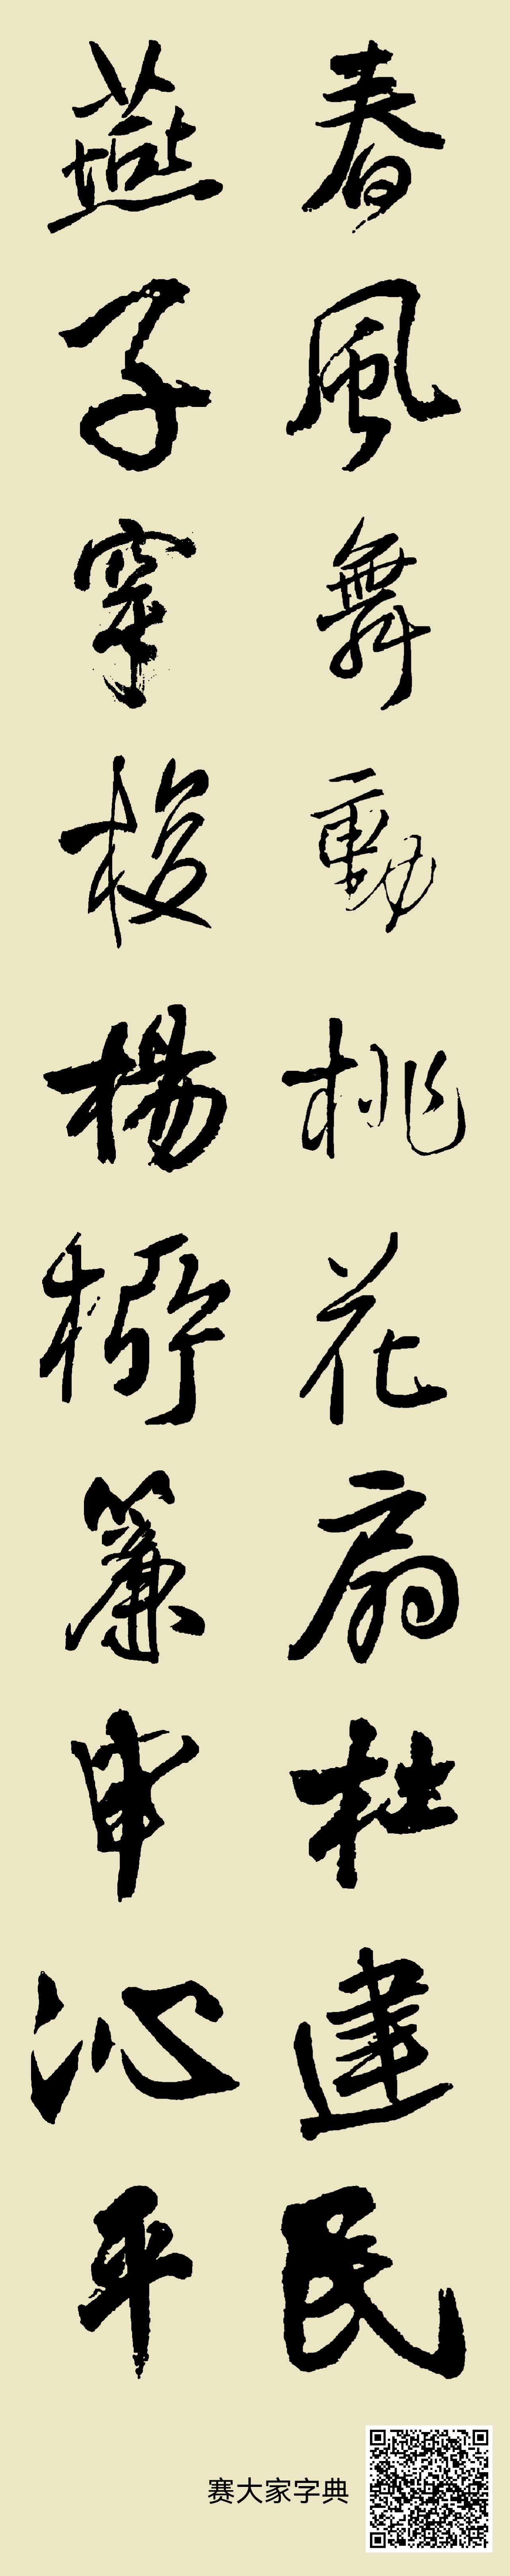 春風舞動桃花扇杜建民
燕子穿梭楊柳簾申沁平
赛大家字典